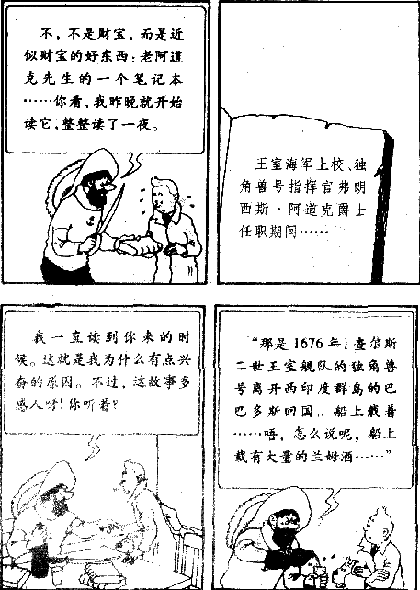 不，不是财宝，而是近
似财宝的好东西：老阿道
克先生的一个笔记本
……你看，我昨晚就开始
读它，整整读了一夜。
王室海军上校、独
角兽号指挥官弗朗
西斯·阿道克爵士
任职期间……
我一直读到你来的时
候。这就是我为什么有点兴
奋的原因。不过，这故事多
感人呀！你听着？
“那是1676年，查尔斯
二世王室舰队的独角兽
号离开西印度群岛的巴
巴多斯回国，船上载着
……唔，怎么说呢，船上
载有大量的兰姆酒……”